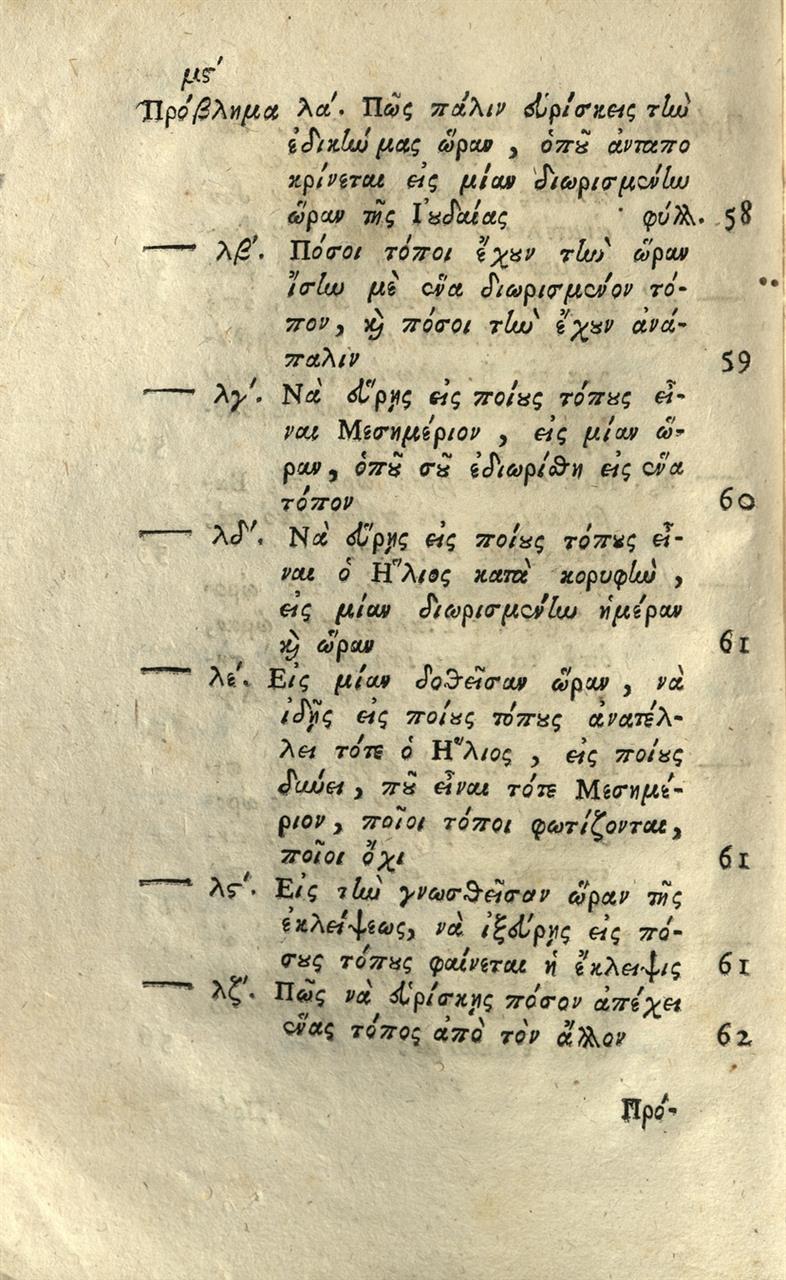 μς´
Πρόβλημα λα´. Πῶς πάλιν εὑρίσκεις τὴν
ἐδικτύ μας ὥραν, ὁποῦ ἀνταπο
κρίνεται εἰς μίαν διωρισμένην
ὥραν τῆς Ἰουδαίας φύλλ. 58
— λβ´. Πόσοι τόποι ἔχουν τὴν ὥραν
ἴσην μὲ ἕνα διωρισμένον τό-
πον, καὶ πόσοι τὴν ἔχουν ἀνά-
παλιν 59
— λγ´. Νὰ εὕρῃς εἰς ποίους τόπους εἶ-
ναι Μεσημέριον, εἰς μίαν ὥ-
ραν, ὁποῦ σοῦ ἐδιωρίθη εἰς ἕνα
τόπον 60
— λδ´. Νὰ εὕρῃς εἰς ποίους τόπους εἶ-
ναι ὁ Ἥλιος κατὰ κορυφὴν,
εἰς μίαν διωρισμένην ἡμέραν
καὶ ὥραν 61
— λε´. Εἰς μίαν δοθεῖσαν ὥραν, νὰ
ἰδῇς εἰς ποίους τόπους ἀνατέλ-
λει τότε ὁ Ἥλιος, εἰς ποίους
δύνει, ποῦ εἶναι τότε Μεσημέ-
ριον, ποῖοι τόποι φωτίζονται,
ποῖοι ὄχι 61
— λς´. Εἰς τὴν γνωσθεῖσαν ὥραν τῆς
ἐκλείψεως, νὰ ἐξεύρῃς εἰς πό-
σους τόπους φαίνεται ἡ ἔκλειψις 61
— λζ´. Πῶς νὰ εὑρίσκῃς πόσον ἀπέχει
ἕνας τόπος ἀπὸ τὸν ἄλλον 62
Πρό-